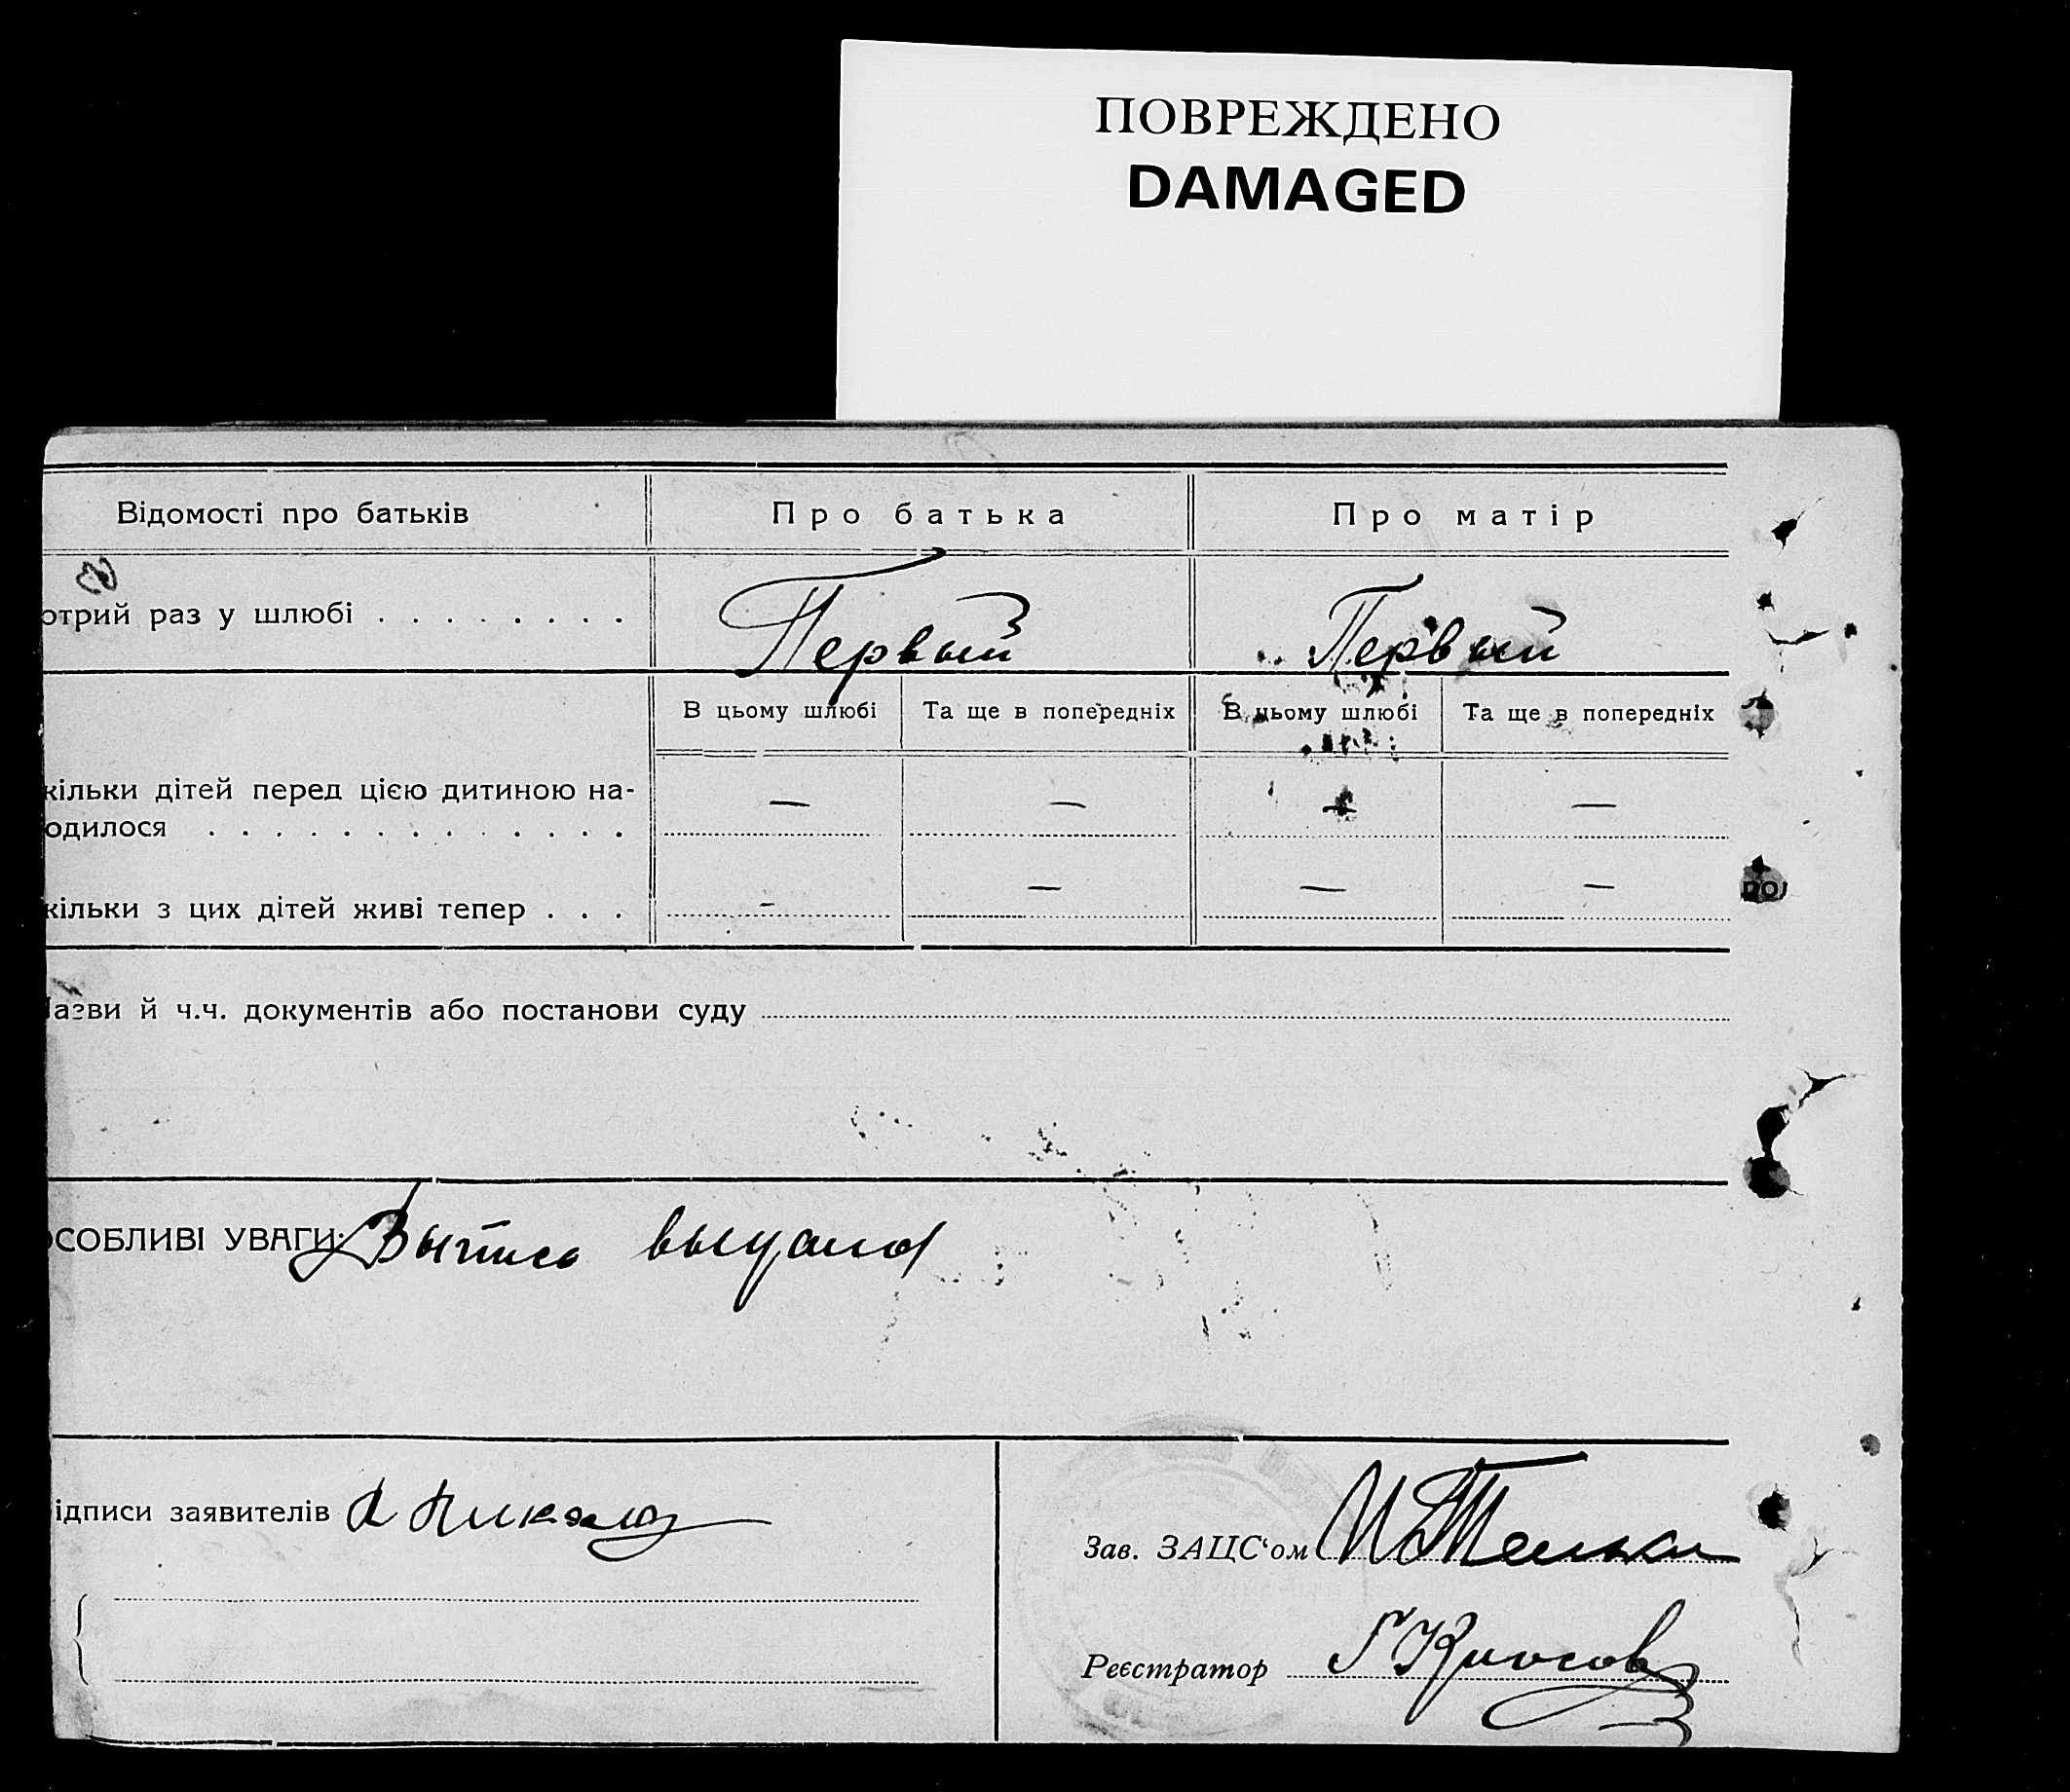 ПОВРЕЖДЕНО
DAMAGED
Відомості про батьків
Про батька
Про матір
отрий раз у шлюбі . . . . . . . .
Первый
Первый
В цьому шлюбі
Та ще в попередніх
В цьому шлюбі
Та ще в попередніх
кільки дітей перед цією дитиною на-
одилося . . . . . . . . . . . . .
— — — —
кільки з цих дітей живі тепер . . .
- — — —
азви й ч.ч. документів або постанови суду
ОСОБЛИВІ УВАГИ: Выпись выдана
ідписи заявителів
Зав. ЗАЦС‘ом
Реєстратор